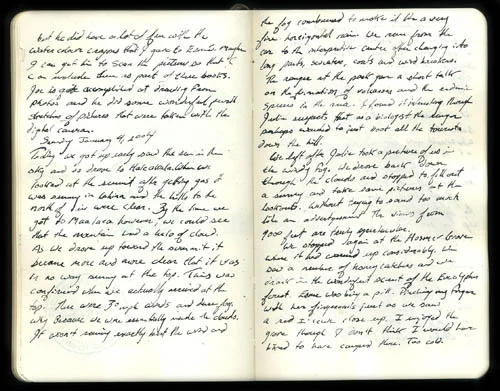 but he did have a lot of fun with the
water colour crayons that I gave to Earnie. Maybe
I can get him to scan the pictures so that I
can include them as part of these books.
Joe is quite accomplished at drawing from
photos and he did some wonderful pencil
sketching of pictures that were taken with the
digital camera.
Sunday January 4, 2004
Today we got up early saw the sun in the
sky and so drove to Haleakala. When we
looked at the summit after getting gas it
was sunny in Kahului and the hills to the
north of him were clear. By the time we
got to Makawao however, we could see
that the mountain had a halo of cloud.
As we drove up toward the summit it
became more and more clear that it was
in no way sunny at the top. This was
confirmed when we actually arrived at the
top. There were 30 mph winds and dense fog.
Why because we were essentially inside the clouds.
It wasn't raining exactly but the wind and
the fog combined to make it like a very
fine horizontal rain. We ran from the
car to the interpretive centre after changing into
long pants, sweaters, coats and wind breakers.
The ranger at the park gave a short talk
on the formation of volcanoes and the endemic
species in the area. I found it interesting though
Julia suspects that as a biologist the ranger
perhaps wanted to just boot all the tourists
down the hill.
We left after Julia took a picture of us in
the windy fog. We drove back down
through the clouds and stopped to fill out
a survey and take some pictures at the
lookouts. Without trying to sound too much
like an advertisement the views from
9000 feet are truly spectacular.
We stopped again at the Hosmer Grove
where it had warmed up considerably. We
saw a number of honeycatchers and we
drank in the wonderful scent of the Eucalyptus
forest. Some was being a pill. Pinching my fingers
with her fingernails just as we saw
a red I'iwi close up. I enjoyed the
grove though I don't think I would have
liked to have camped there. Too cold.